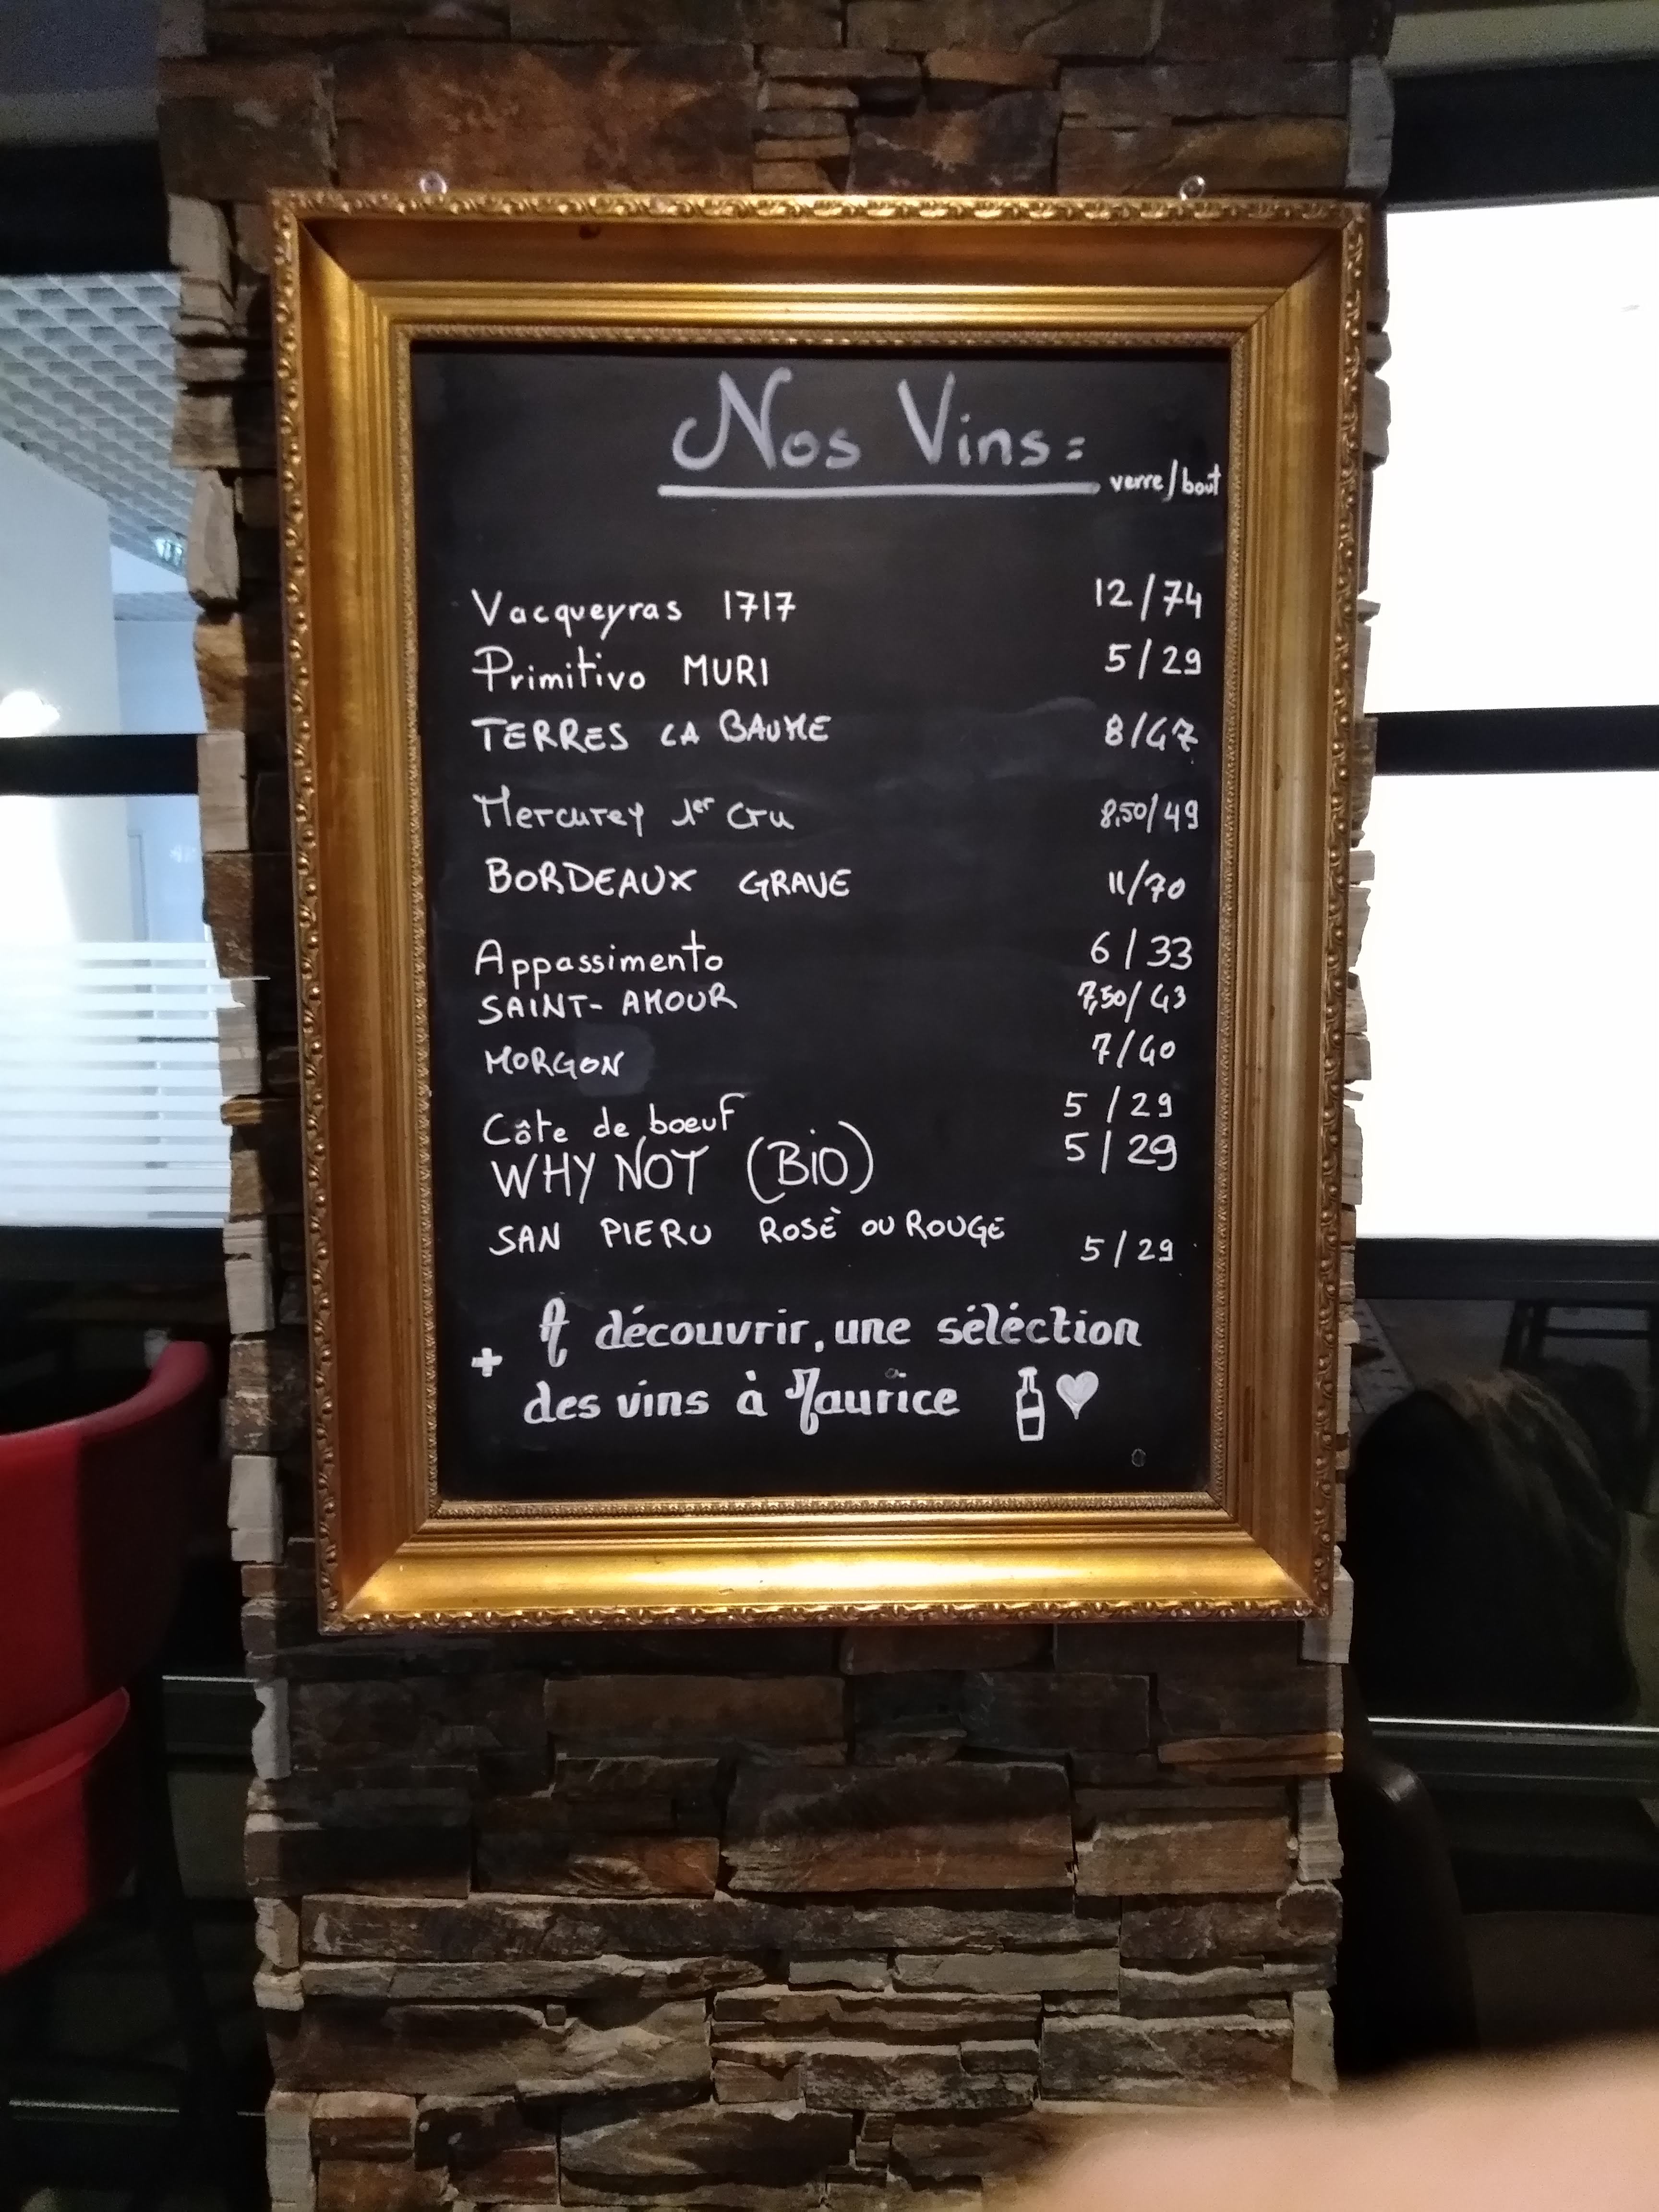 Nos Vins:
verre/bout
Vacqueyras 1717 12/74
Primitivo MURI 5/29
TERRES LA BAUME 8/47
Mercurey 1er Cru 8,50/49
BORDEAUX GRAVE 11/70
Appassimento 6/33
SAINT-AMOUR 7,50/43
MORGON 7/40
Côte de boeuf 5/29
WHY NOT (BiO) 5/29
SAN PIERU ROSÈ OU ROUGE 5/29
+ A découvrir, une séléction
des vins à Maurice